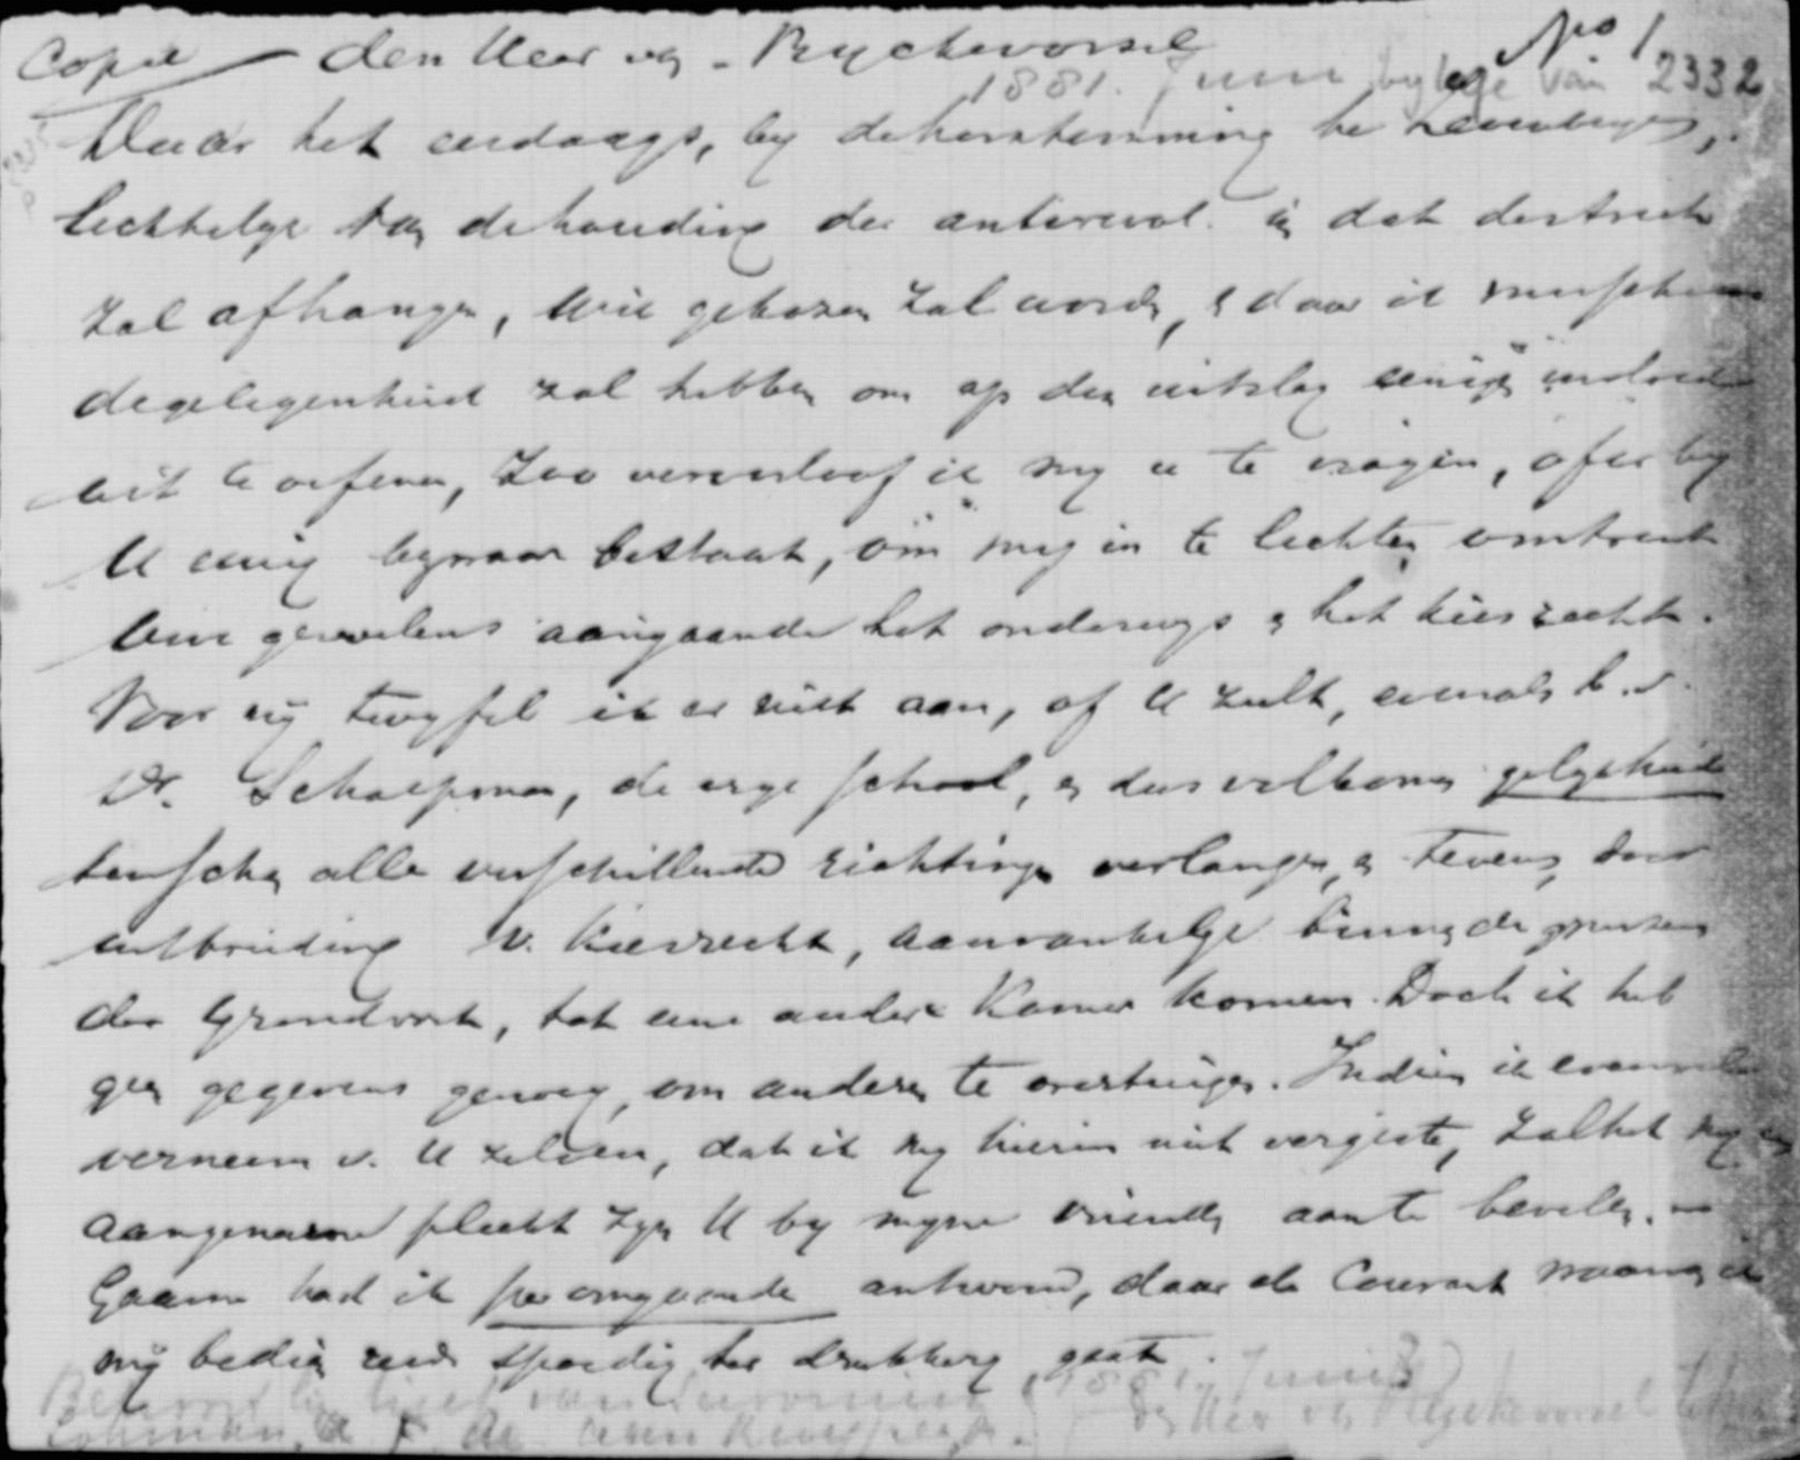 Copie - den Heer v. Ryckevorsel No 1
1881. Juni bylage van 2332
Daar het eerdaags, by de herstemming te
lichtelyk van de houding der antirevol. in dat district
zal afhangen, wie gekozen zal worden, & daar ik misschien
de gelegenheid zal hebben om op den uitslag eenigen invloed
uit te oefenen, zoo veroorloof ik my u te vragen, of er by
U eenig bezwaar bestaat, om my in te lichten omtrent
Uwe gevoelens aangaande het onderwys & het kiesrecht.
Voor my twyfel ik er niet aan, of U zult, evenals b.v.
Dr. Schaepman, de vrye school, & dus volkomen gelykheid
tusschen alle verschillende richtingen verlangen, & tevens, door
uitbreiding v. kiesrecht, aanvankelyk binnen de grenzen
der Grondwet, tot eene andere Kamer komen. Doch ik heb
geen gegevens genoeg, om anderen te overtuigen. Indien ik evenwel
verneem v. U zelven, dat ik my hierin niet vergiste, zal het my een
aangename plicht zyn U by myne vrienden aan te bevelen. -
Gaarne had ik per omgaande antwoord, daar de Courant waarvan ik
my bedien reeds spoedig ter drukkery gaat.
1881. Juni
Lohman den Heer v. Ryckevorsel